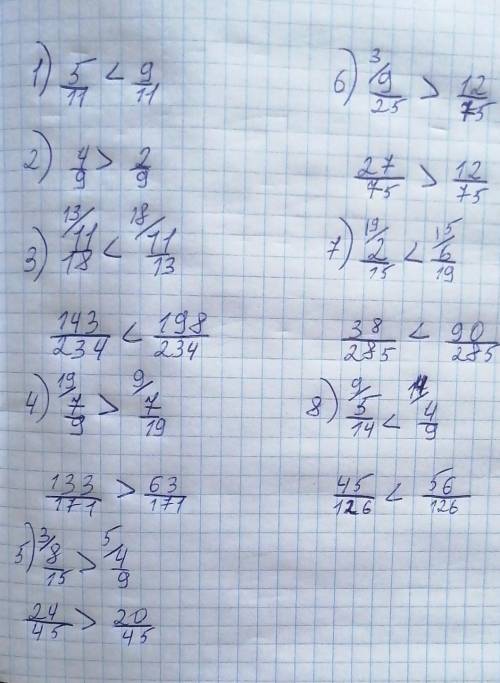 1) 5/11 < 9/11
2) 4/9 > 2/9
3) 13/ 11/18 < 18/ 11/13
143/234 < 198/234
4) 19/ 7/9 > 9/ 7/19
133/171 > 63/171
5) 3/ 8/15 > 5/ 4/9
24/45 > 20/45
6) 3/ 9/25 > 12/75
27/75 > 12/75
7) 19/ 2/15 < 15/ 6/19
38/285 < 90/285
8) 9/ 5/14 < 14/ 4/9
45/126 < 56/126